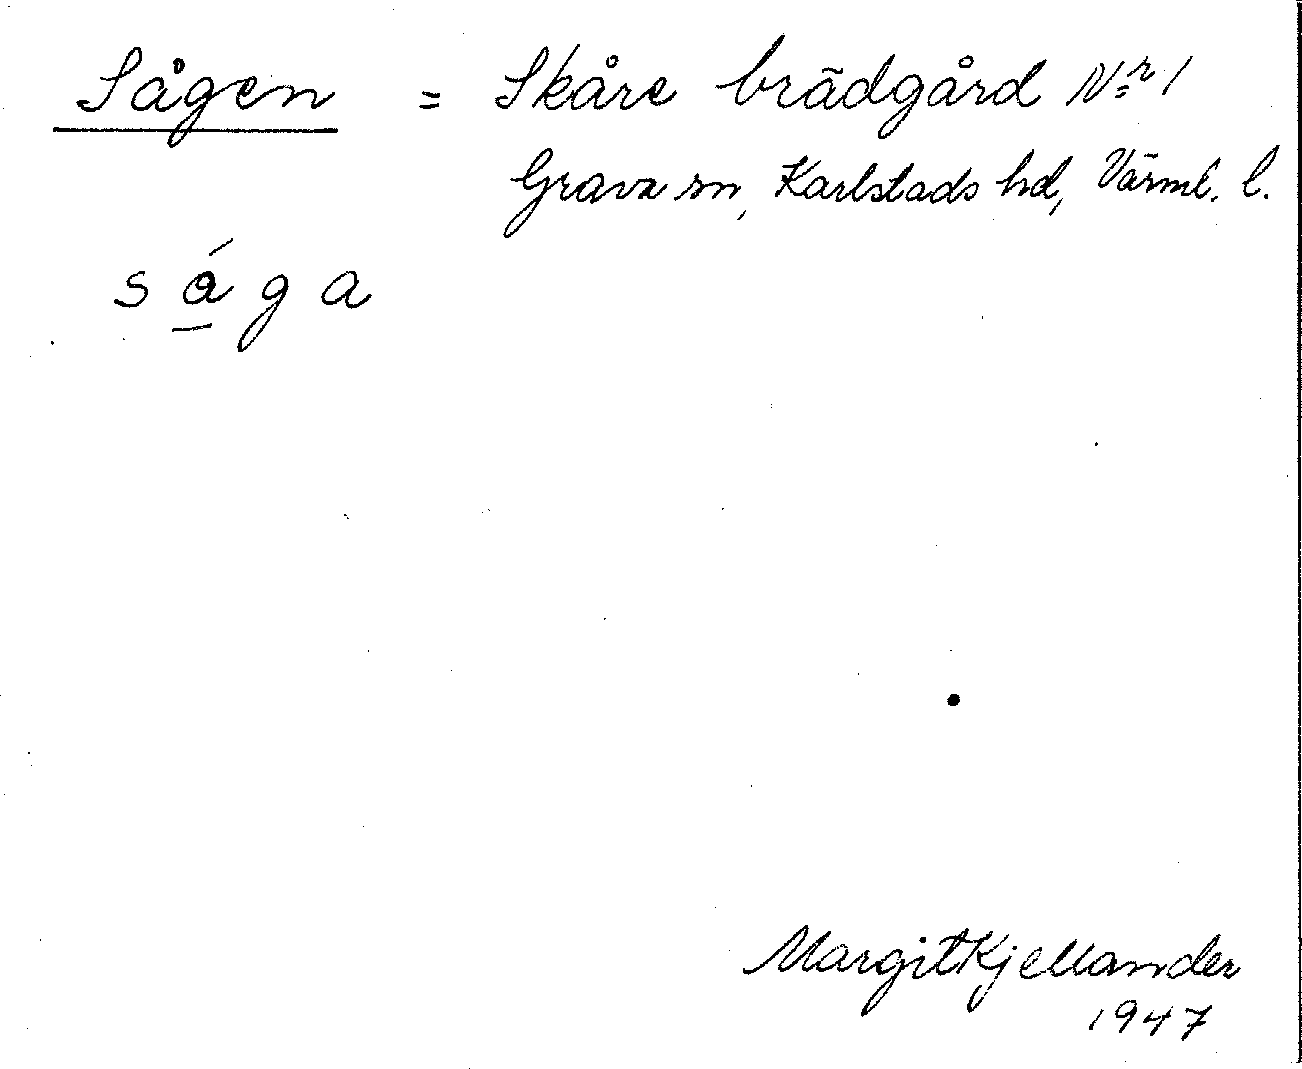 Sågen = Skåre brädgård Nr 1
Grava sn, Karlstads hd, Värml. l.
såga
Margit Kjellander
1947